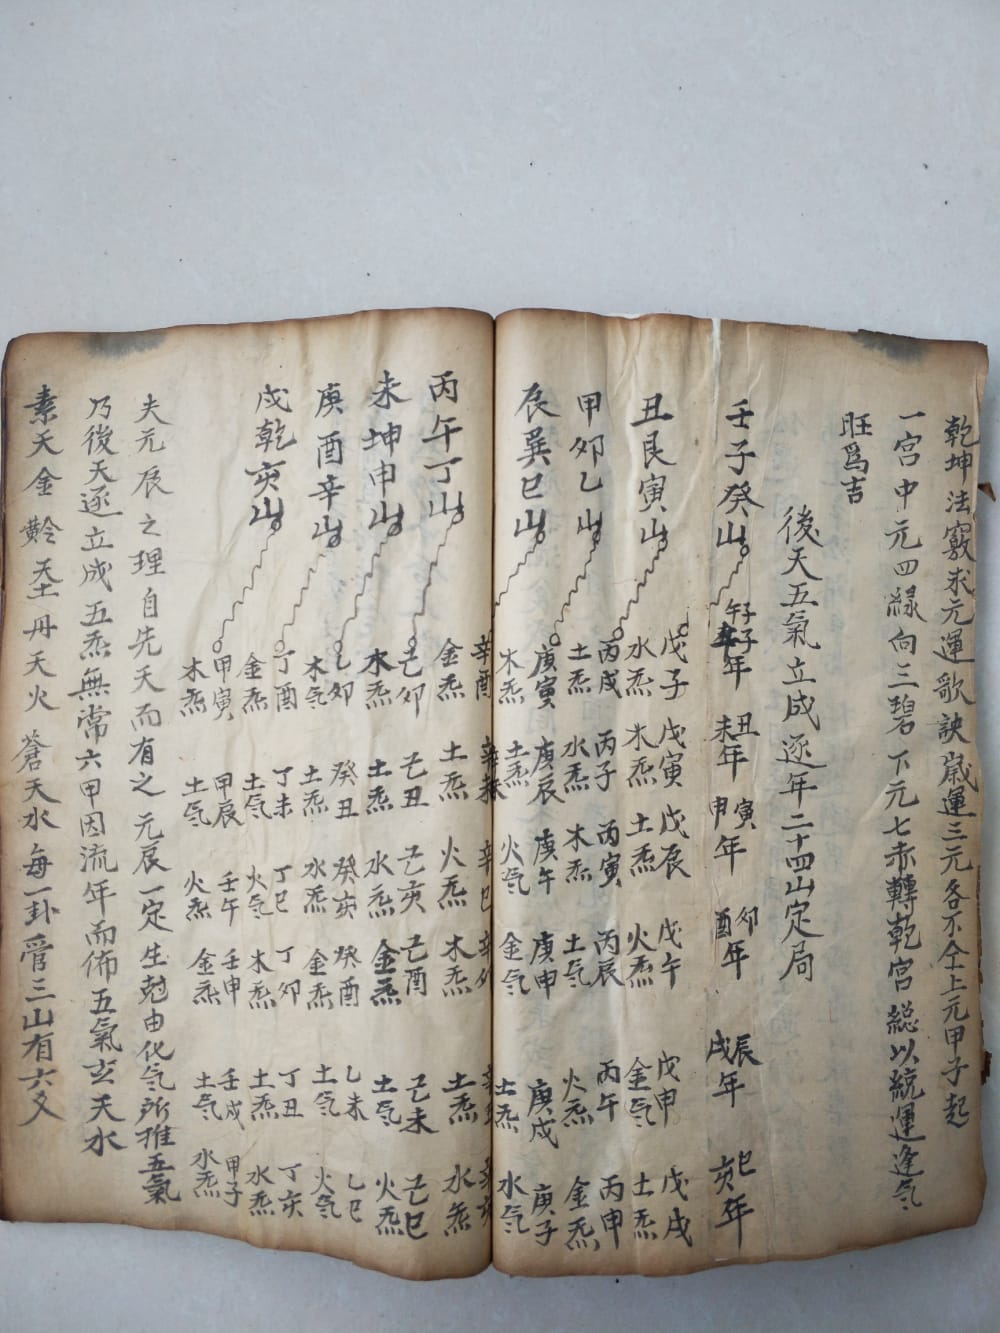 乾坤法竅求元運歌訣嵗運三元各不仝上元甲子起
一宫中元四緑向三碧下元七赤轉乾宫総以統運逢气
旺爲吉
後天五氣立成逐年二十四山定局
壬子癸山
午子年 丑未年 寅申年 卯酉年 辰戌年 巳亥年
丑艮寅山
戊子 戊寅 戊辰 戊午 戊申 戊戌
水炁 木炁 土炁 火炁 金气 土炁
甲卯乙山
丙戌 丙子 丙寅 丙辰 丙午 丙申
土炁 水炁 木炁 土气 火炁 金炁
辰巽巳山
庚寅 庚辰 庚午 庚申 庚戌 庚子
木炁 土炁 火气 金气 土炁 水气
丙午丁山
辛酉 辛未 辛巳 辛卯 辛丑 辛亥
金炁 土炁 火炁 木炁 土炁 水炁
未坤申山
己卯 己丑 己亥 己酉 己未 己巳
木炁 土炁 水炁 金炁 土气 火炁
庚酉辛山
乙卯 癸丑 癸亥 癸酉 乙未 乙巳
木气 土炁 水炁 金炁 土气 火气
戌乾亥山
丁酉 丁未 丁巳 丁卯 丁丑 丁亥
金炁 土气 火气 木炁 土炁 水炁
甲寅 甲辰 壬午 壬申 壬戌 甲子
木炁 土气 火炁 金炁 土气 水炁
夫元辰之理自先天而有之元辰一定生尅由化气所推五氣
乃後天逐立成五炁無常六甲因流年而佈五氣玄天水
素天金黅天土丹天火蒼天水每一卦管三山有六爻